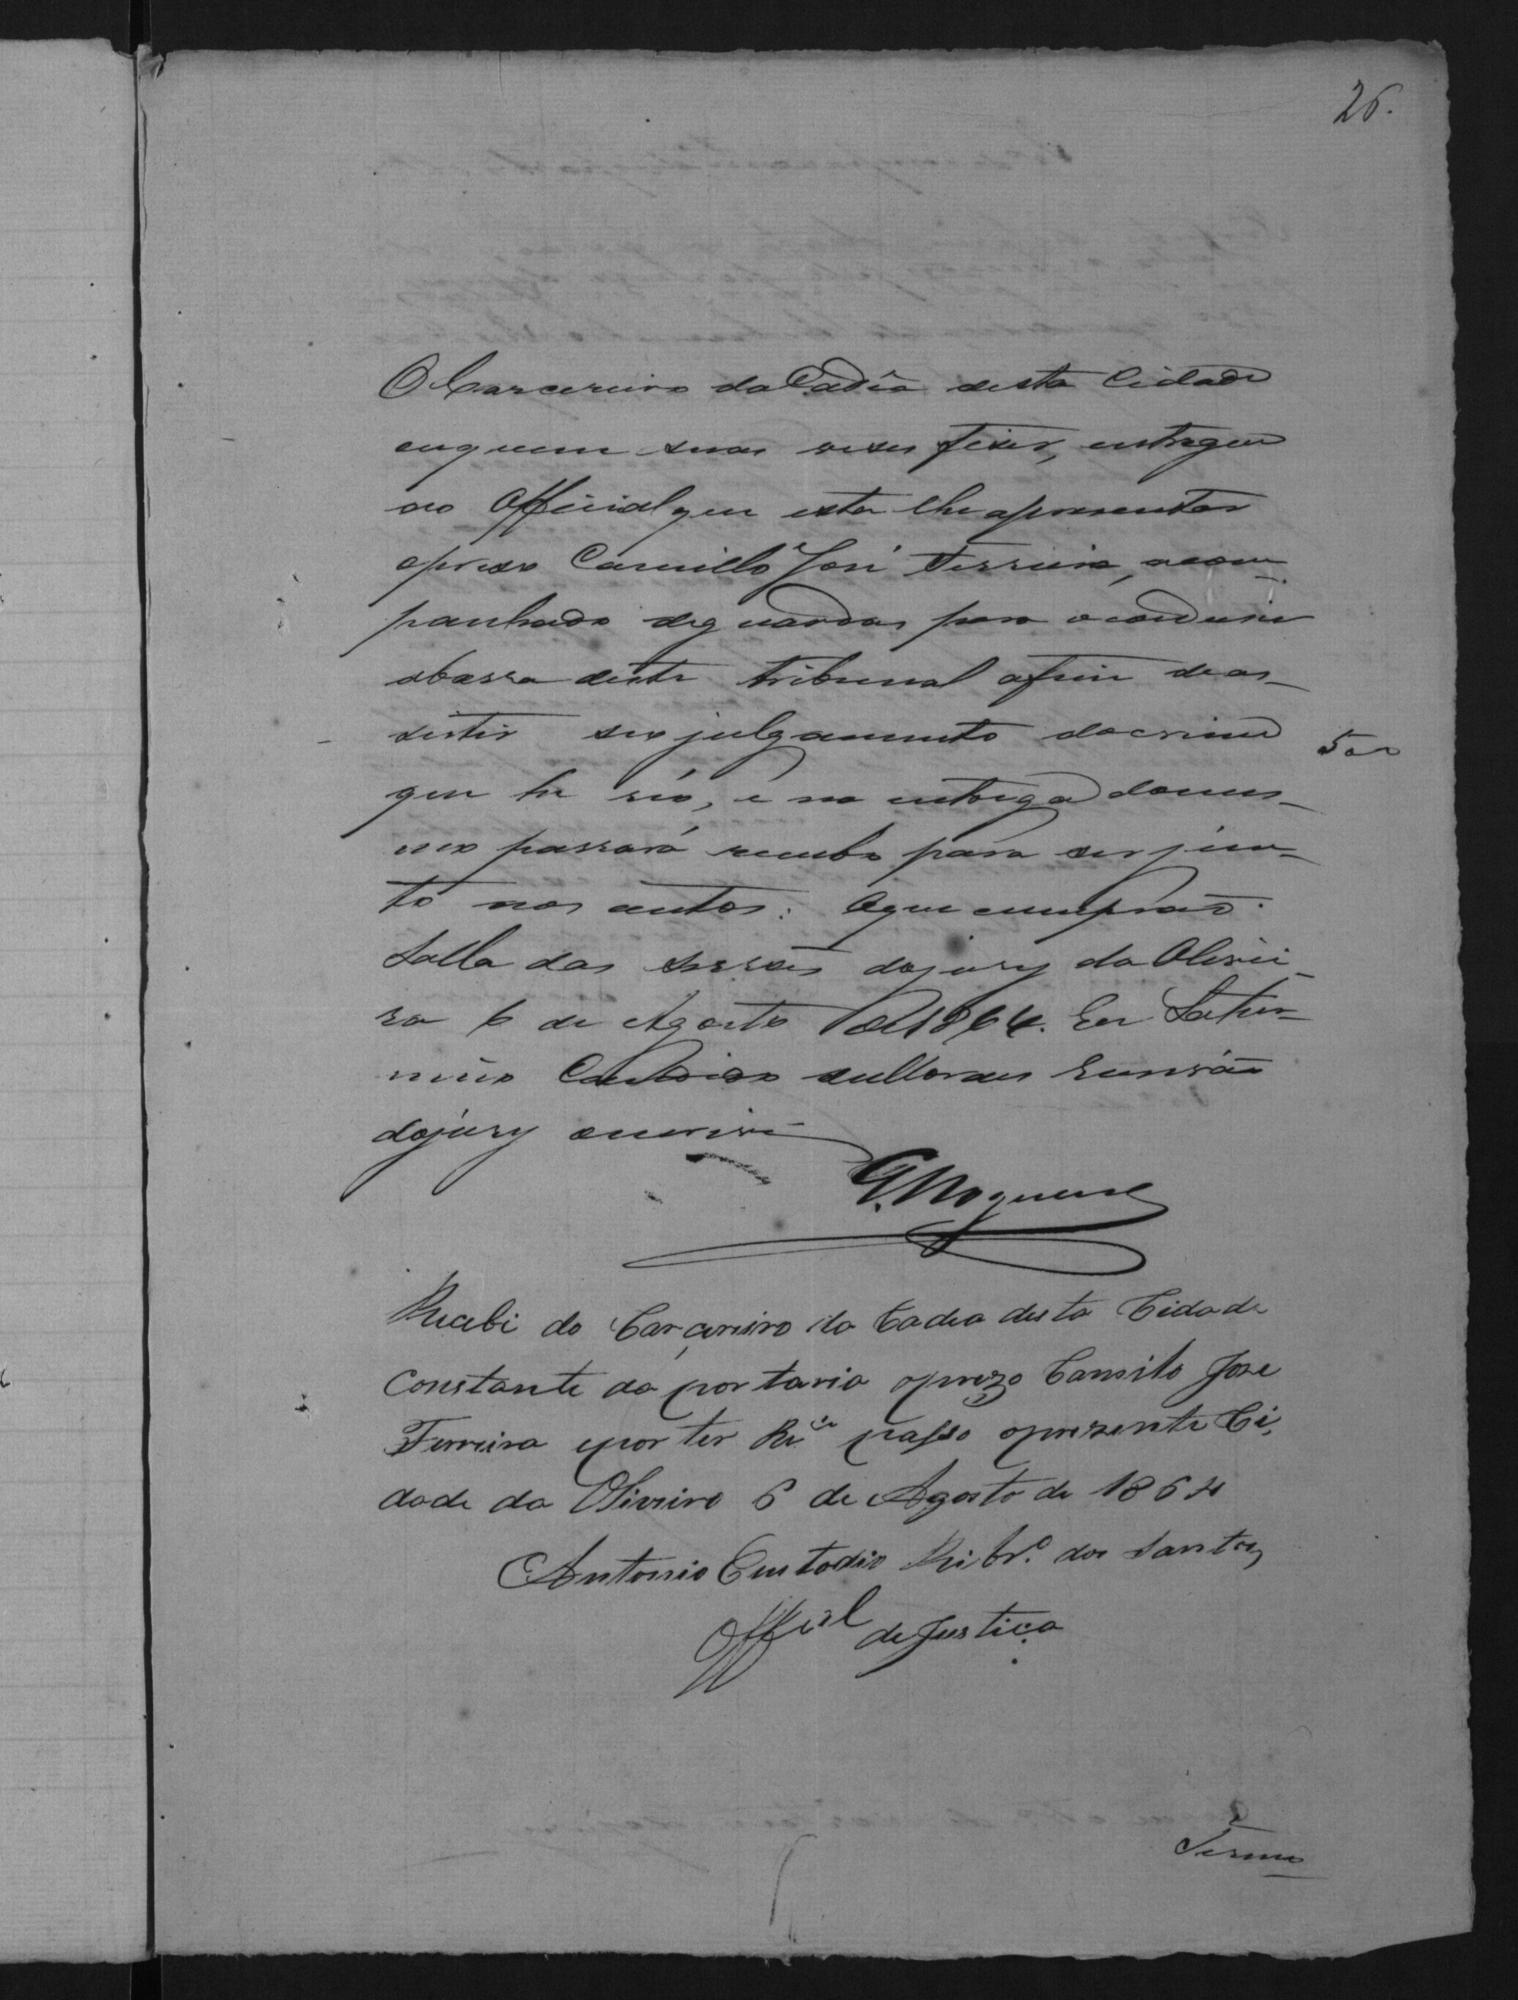 26.
O Carcereiro da Cadêa desta Cidade
ouquem suas vezes fizer, entregue
ao Official que esta lhe apresentar
opreso Camillo José Ferreira, acom-
panhado deguardas para oconduzir
abarra deste tribunal afim deas-
sistir seo julgamento docrime
que he réo, e na entrega domes-
mo passará recibo para ser jun-
to nos autos: Oque cumprão.
Salla das sessões dojury da Olivei-
ra 6 de Agosto de 1864. Eu Satur-
nino Candido Escrivão
dojury escrevi
500
G. Nogueira
Recebi do Carçereiro da Cadea desta Cidade
constante da portaria oprezo Camilo Jose
Ferreira epor ter Re.do passo oprezente Ci,
dade da Oliveira 6 de Agosto de 1864
Antonio Custodio Ribr.o dos Santos
Offeial de Justiça
Termo